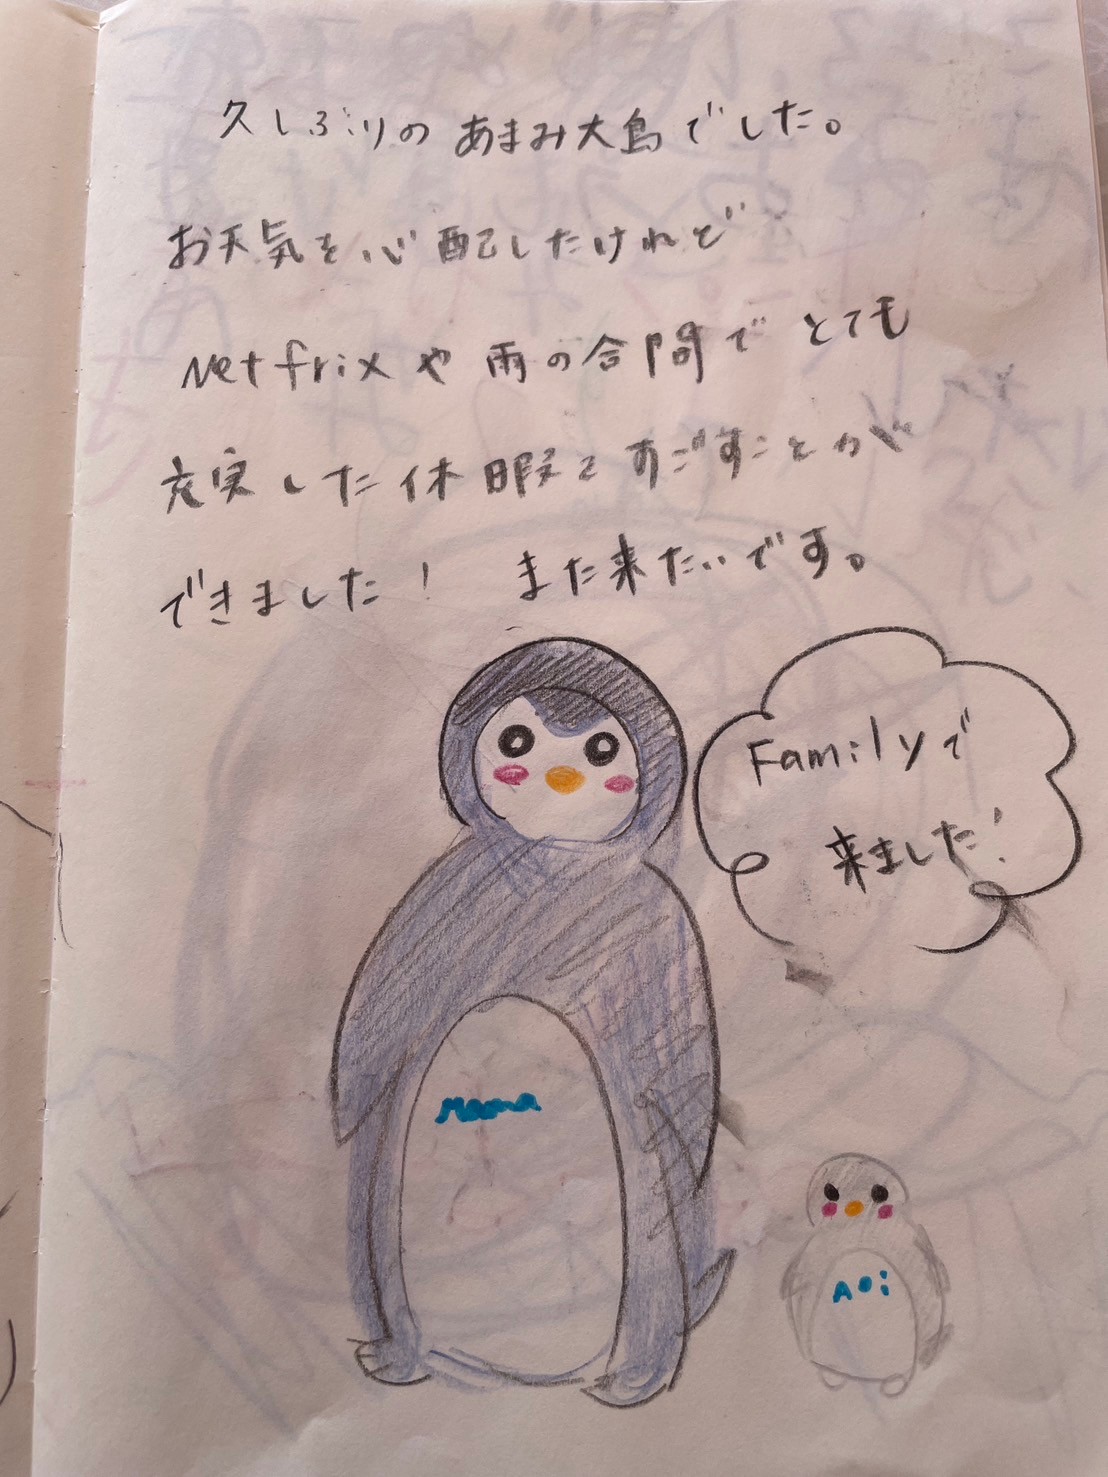 久しぶりのあまみ大島でした。
お天気を心配したけれど
Netfrixや雨の合間でとても
充実した休暇をすごすことが
できました! また来たいです。
Familyで
来ました!
Mama
Aoi